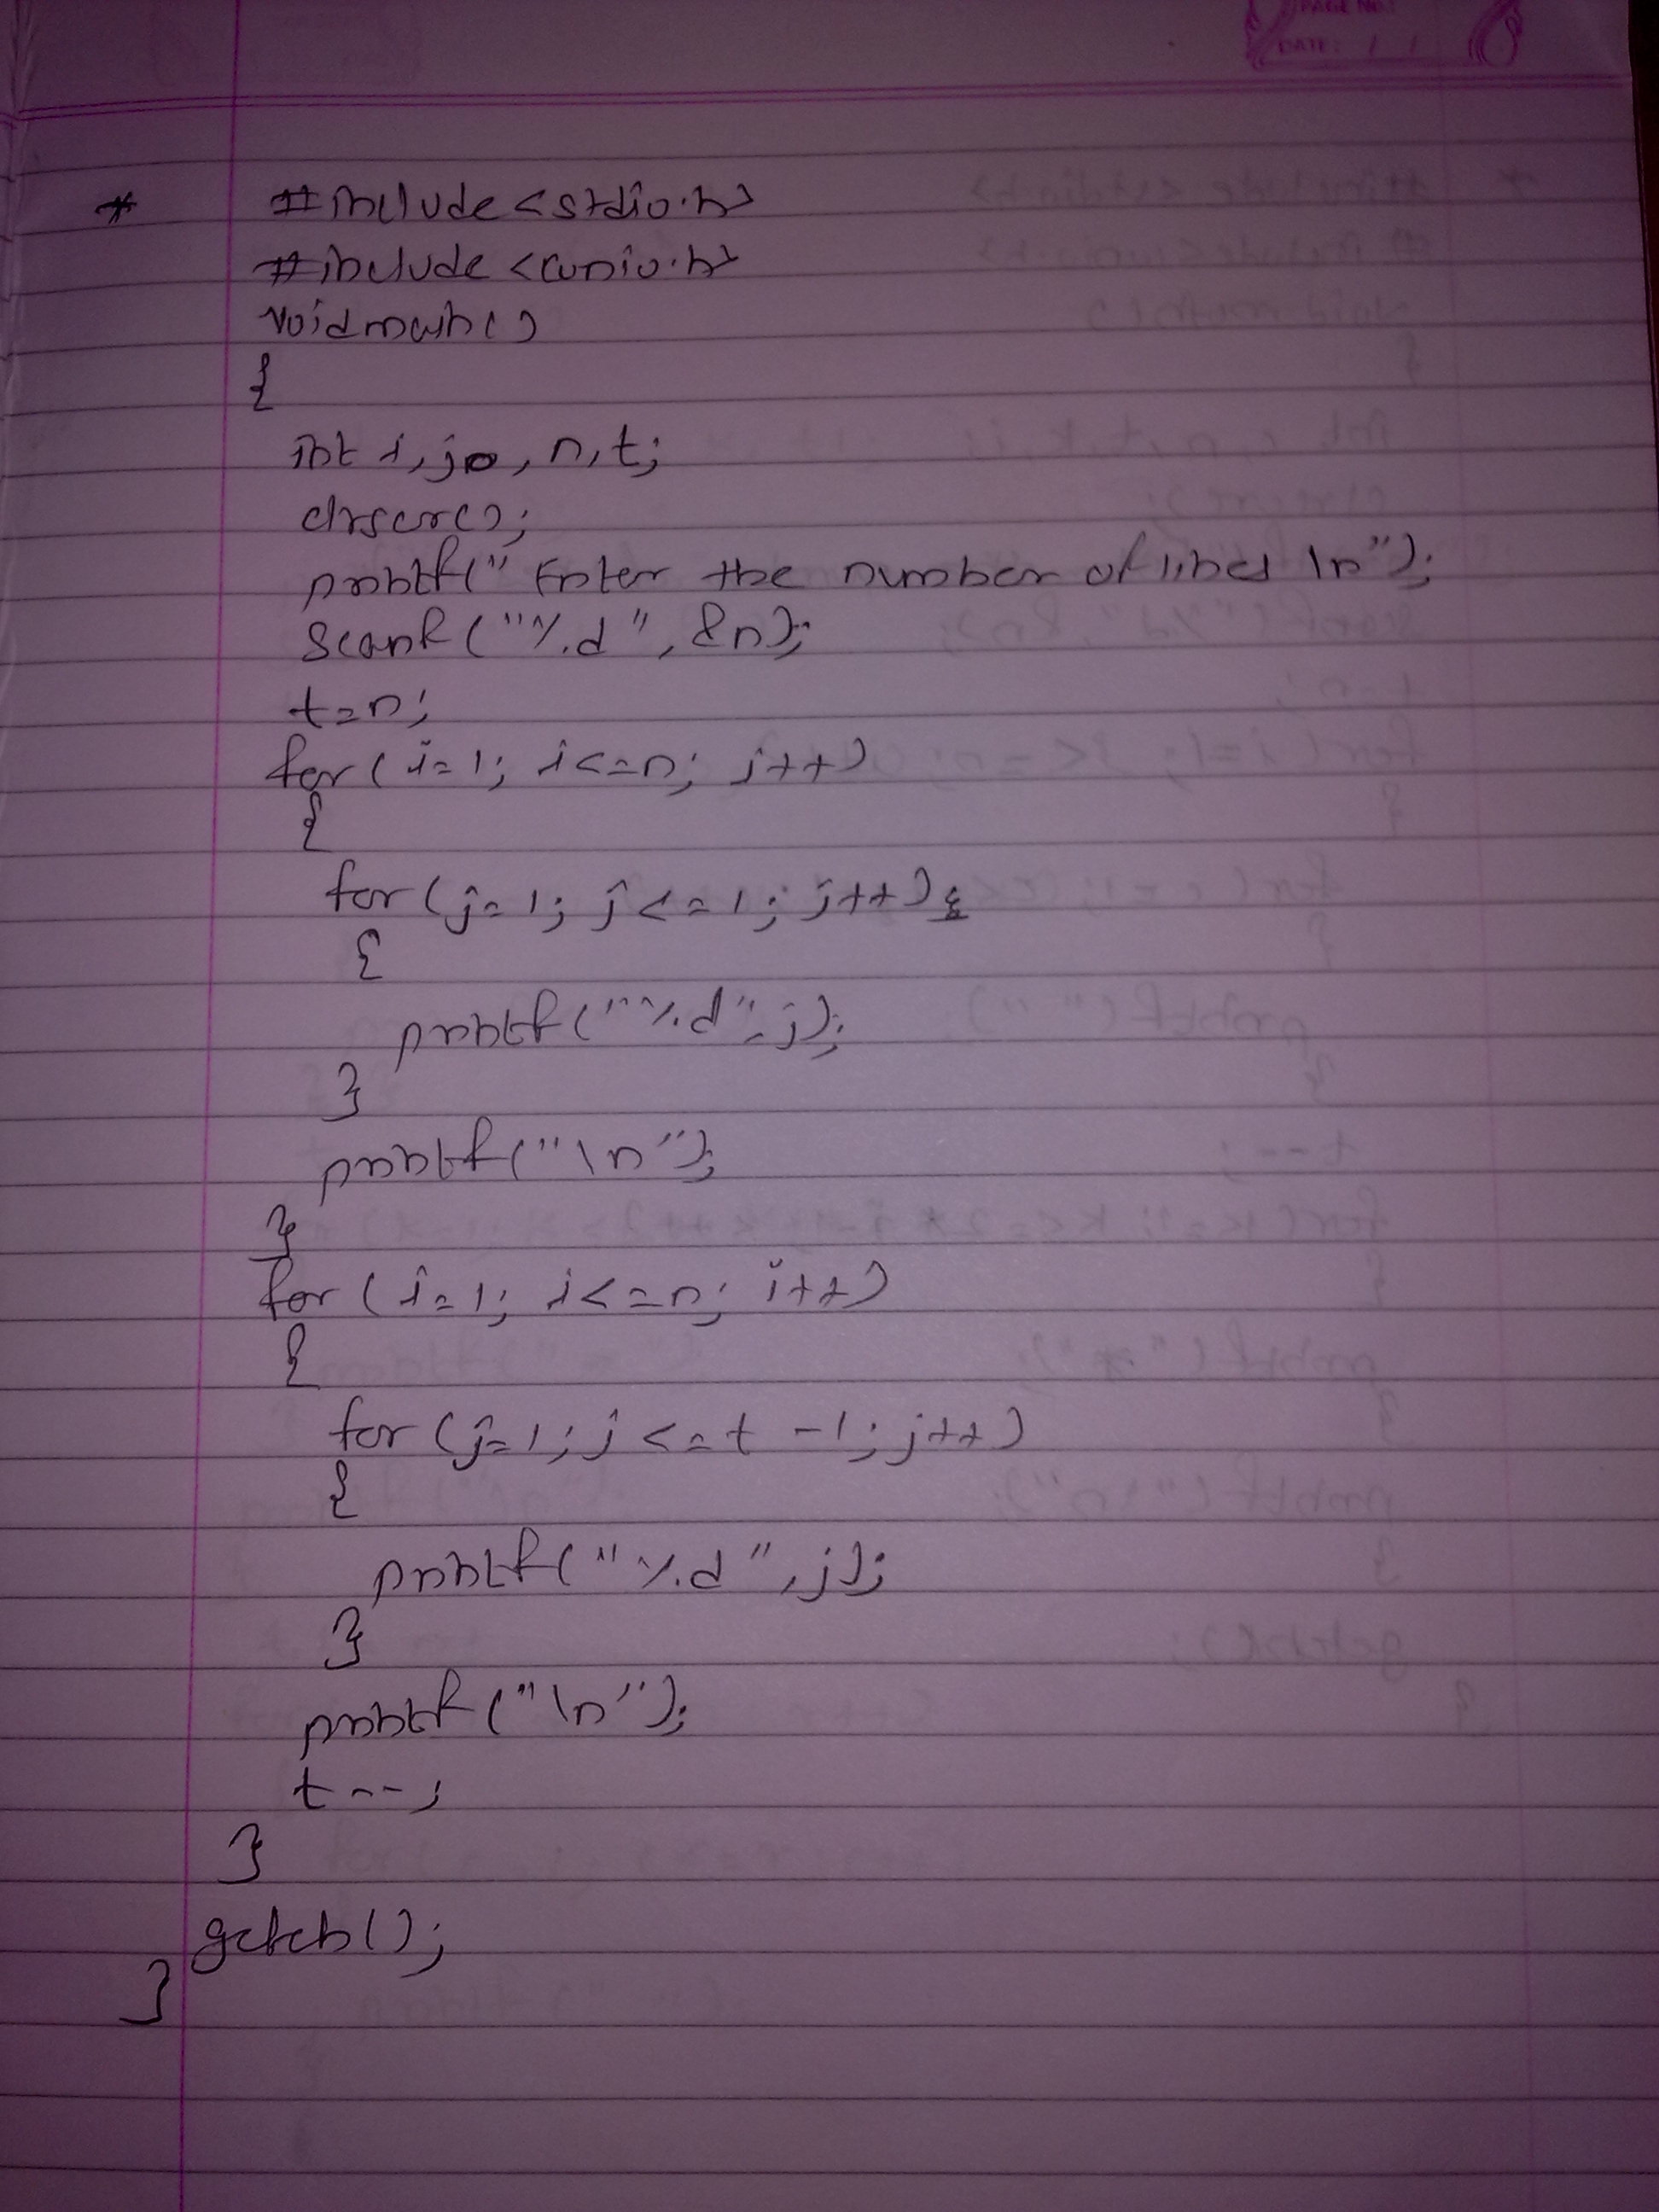 PAGE NO.
DATE: / /
* #include<stdio.h>
#include<conio.h>
void main()
{
int i,j,n,t;
clrscr();
printf("Enter the number of lines \n");
scanf("%d",&n);
t=n;
for(i=1; i<=n; i++)
{
for(j=1; j<=1; j++)
{
printf("%d",j);
}
printf("\n");
}
for(i=1; i<=n; i++)
{
for(j=1;j<=t-1;j++)
{
printf("%d",j);
}
printf("\n");
t--;
}
getch();
}